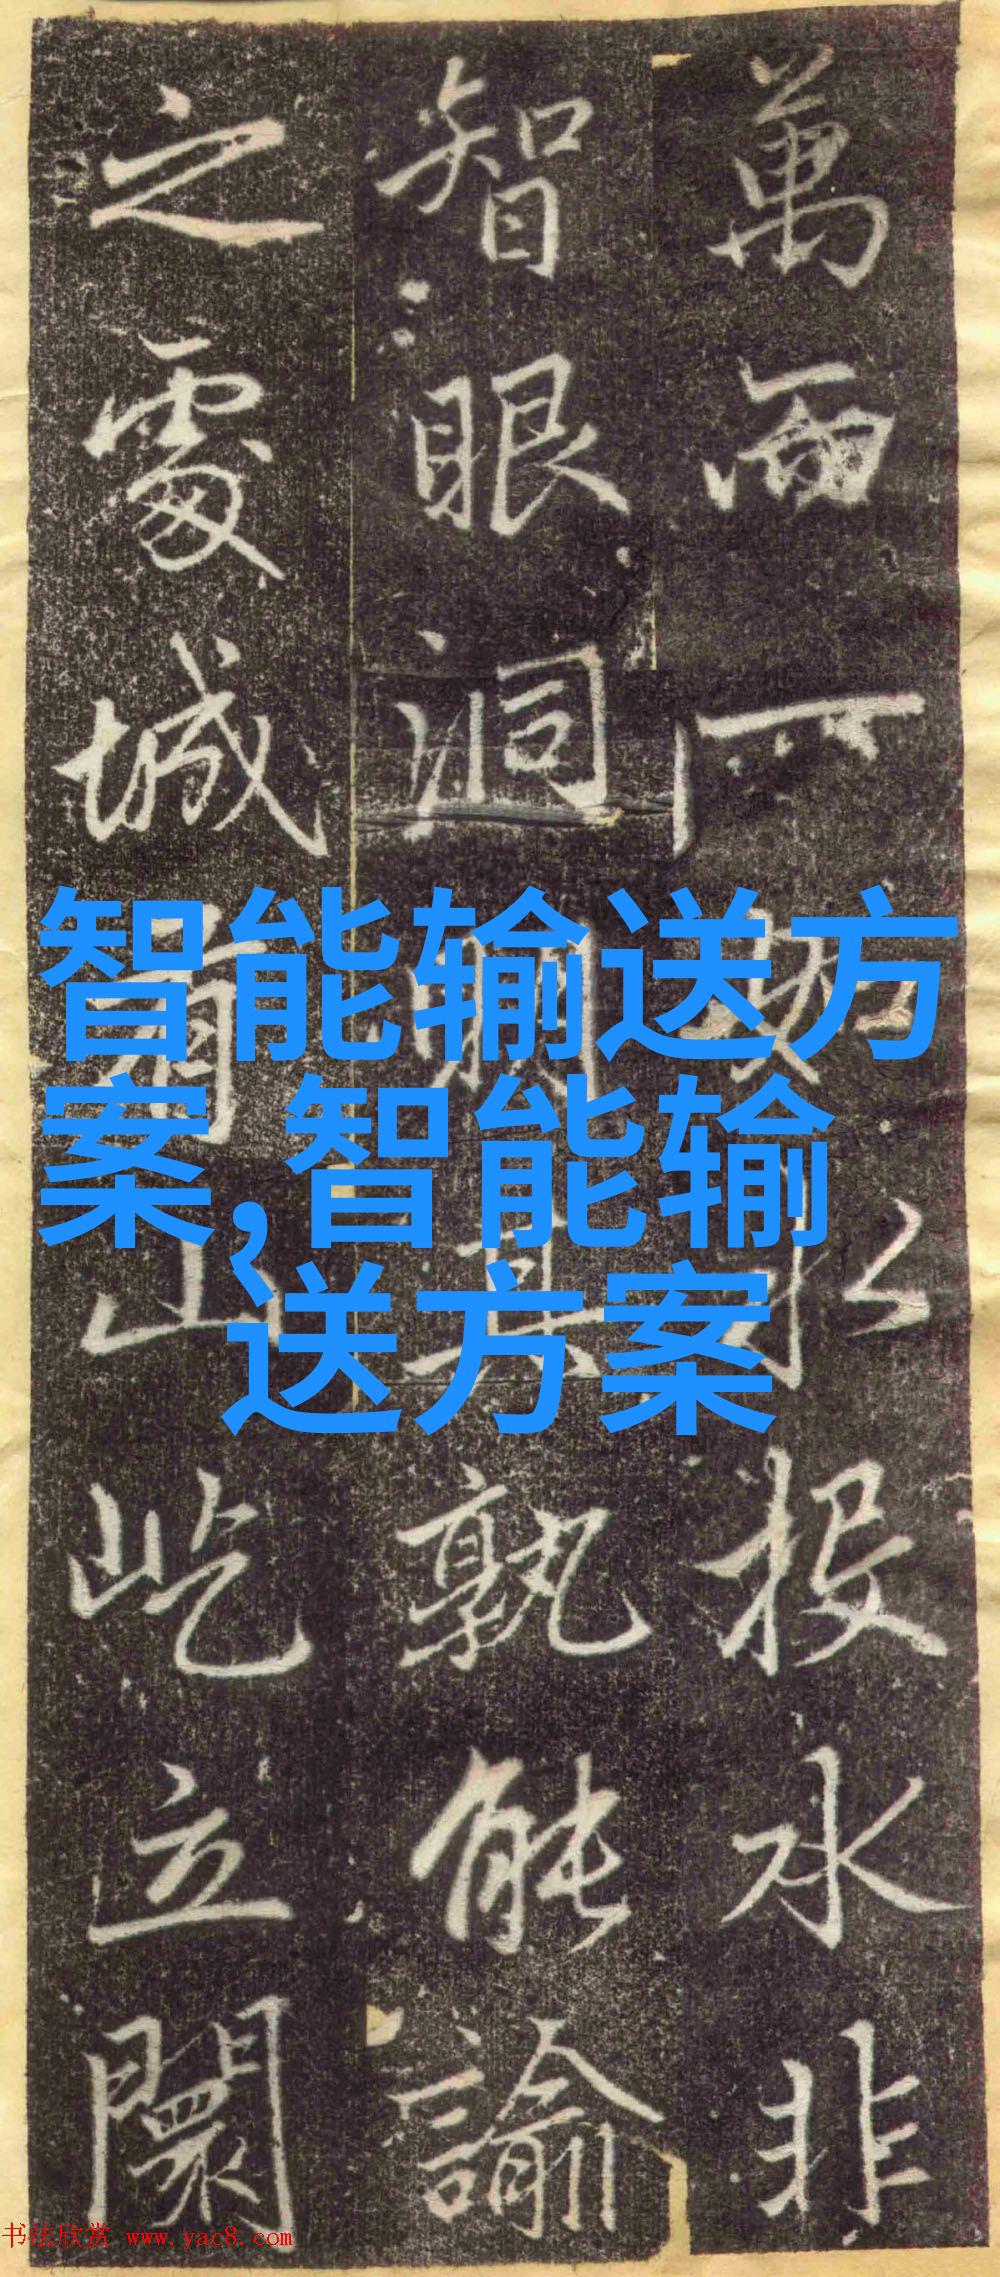 萬一投水非
智眼洞其孰能諭
之處城山屹立闤
智能输送方
案,智能输
送方案
书法欣赏 www.yac8.com